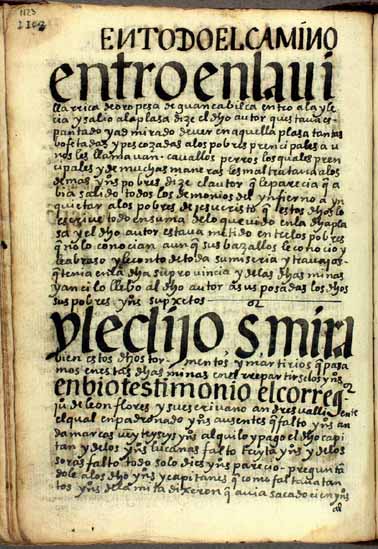 1123
1105
EN TODO EL CAMINO
entro en la ui
lla rrica de oropesa de guancabilca entro a la ygle
cia y salio a la plasa dize el dho autor questaua es
pantado y admirado de uer en aquella plasa tantas
bofetadas y pescozadas a los pobres prencipales a u
nos les llamauan cauallos perros los quales pren
cipales y de muchas maneras les maltrataua a los
demas yns pobres dize el autor q le parecia q a
bia salido todos los demonios del ynfierno a yn
quietar a los pobres de jesucristo q lesto dho lo
escriue todo en suma de lo que uido en la dha pla
sa y el dho autor estaua metido entre los pobres
q no lo conocian aunq sus bazallos le conocio y
le abraso y le conto de toda su miseria y trauajos
q tenia en la dha su prouincia y de las dhas minas
y anci lo llebo al dho autor a sus posadas los dhos
sus pobres yns supxetos
y le dijo s mira
bien estos dhos tormentos y martirios q pasa
mos en estas dhas minas con el repartirselos yns
enbio testimonio el correg
ju de leon flores y su escriuano andresualliente
el qual enpadronado yns ausentes q falto yns an
damarcas ueyteyseys yns alquilo y pago el dho capi
tan y de los yns lucanas falto treyta yns y de los
soras falto todo solo dies yns parecio pregunta
dole a los dho yns y capitanes q como faltaua tan
tos yns de la mita dixeron q auia sacado cien yns